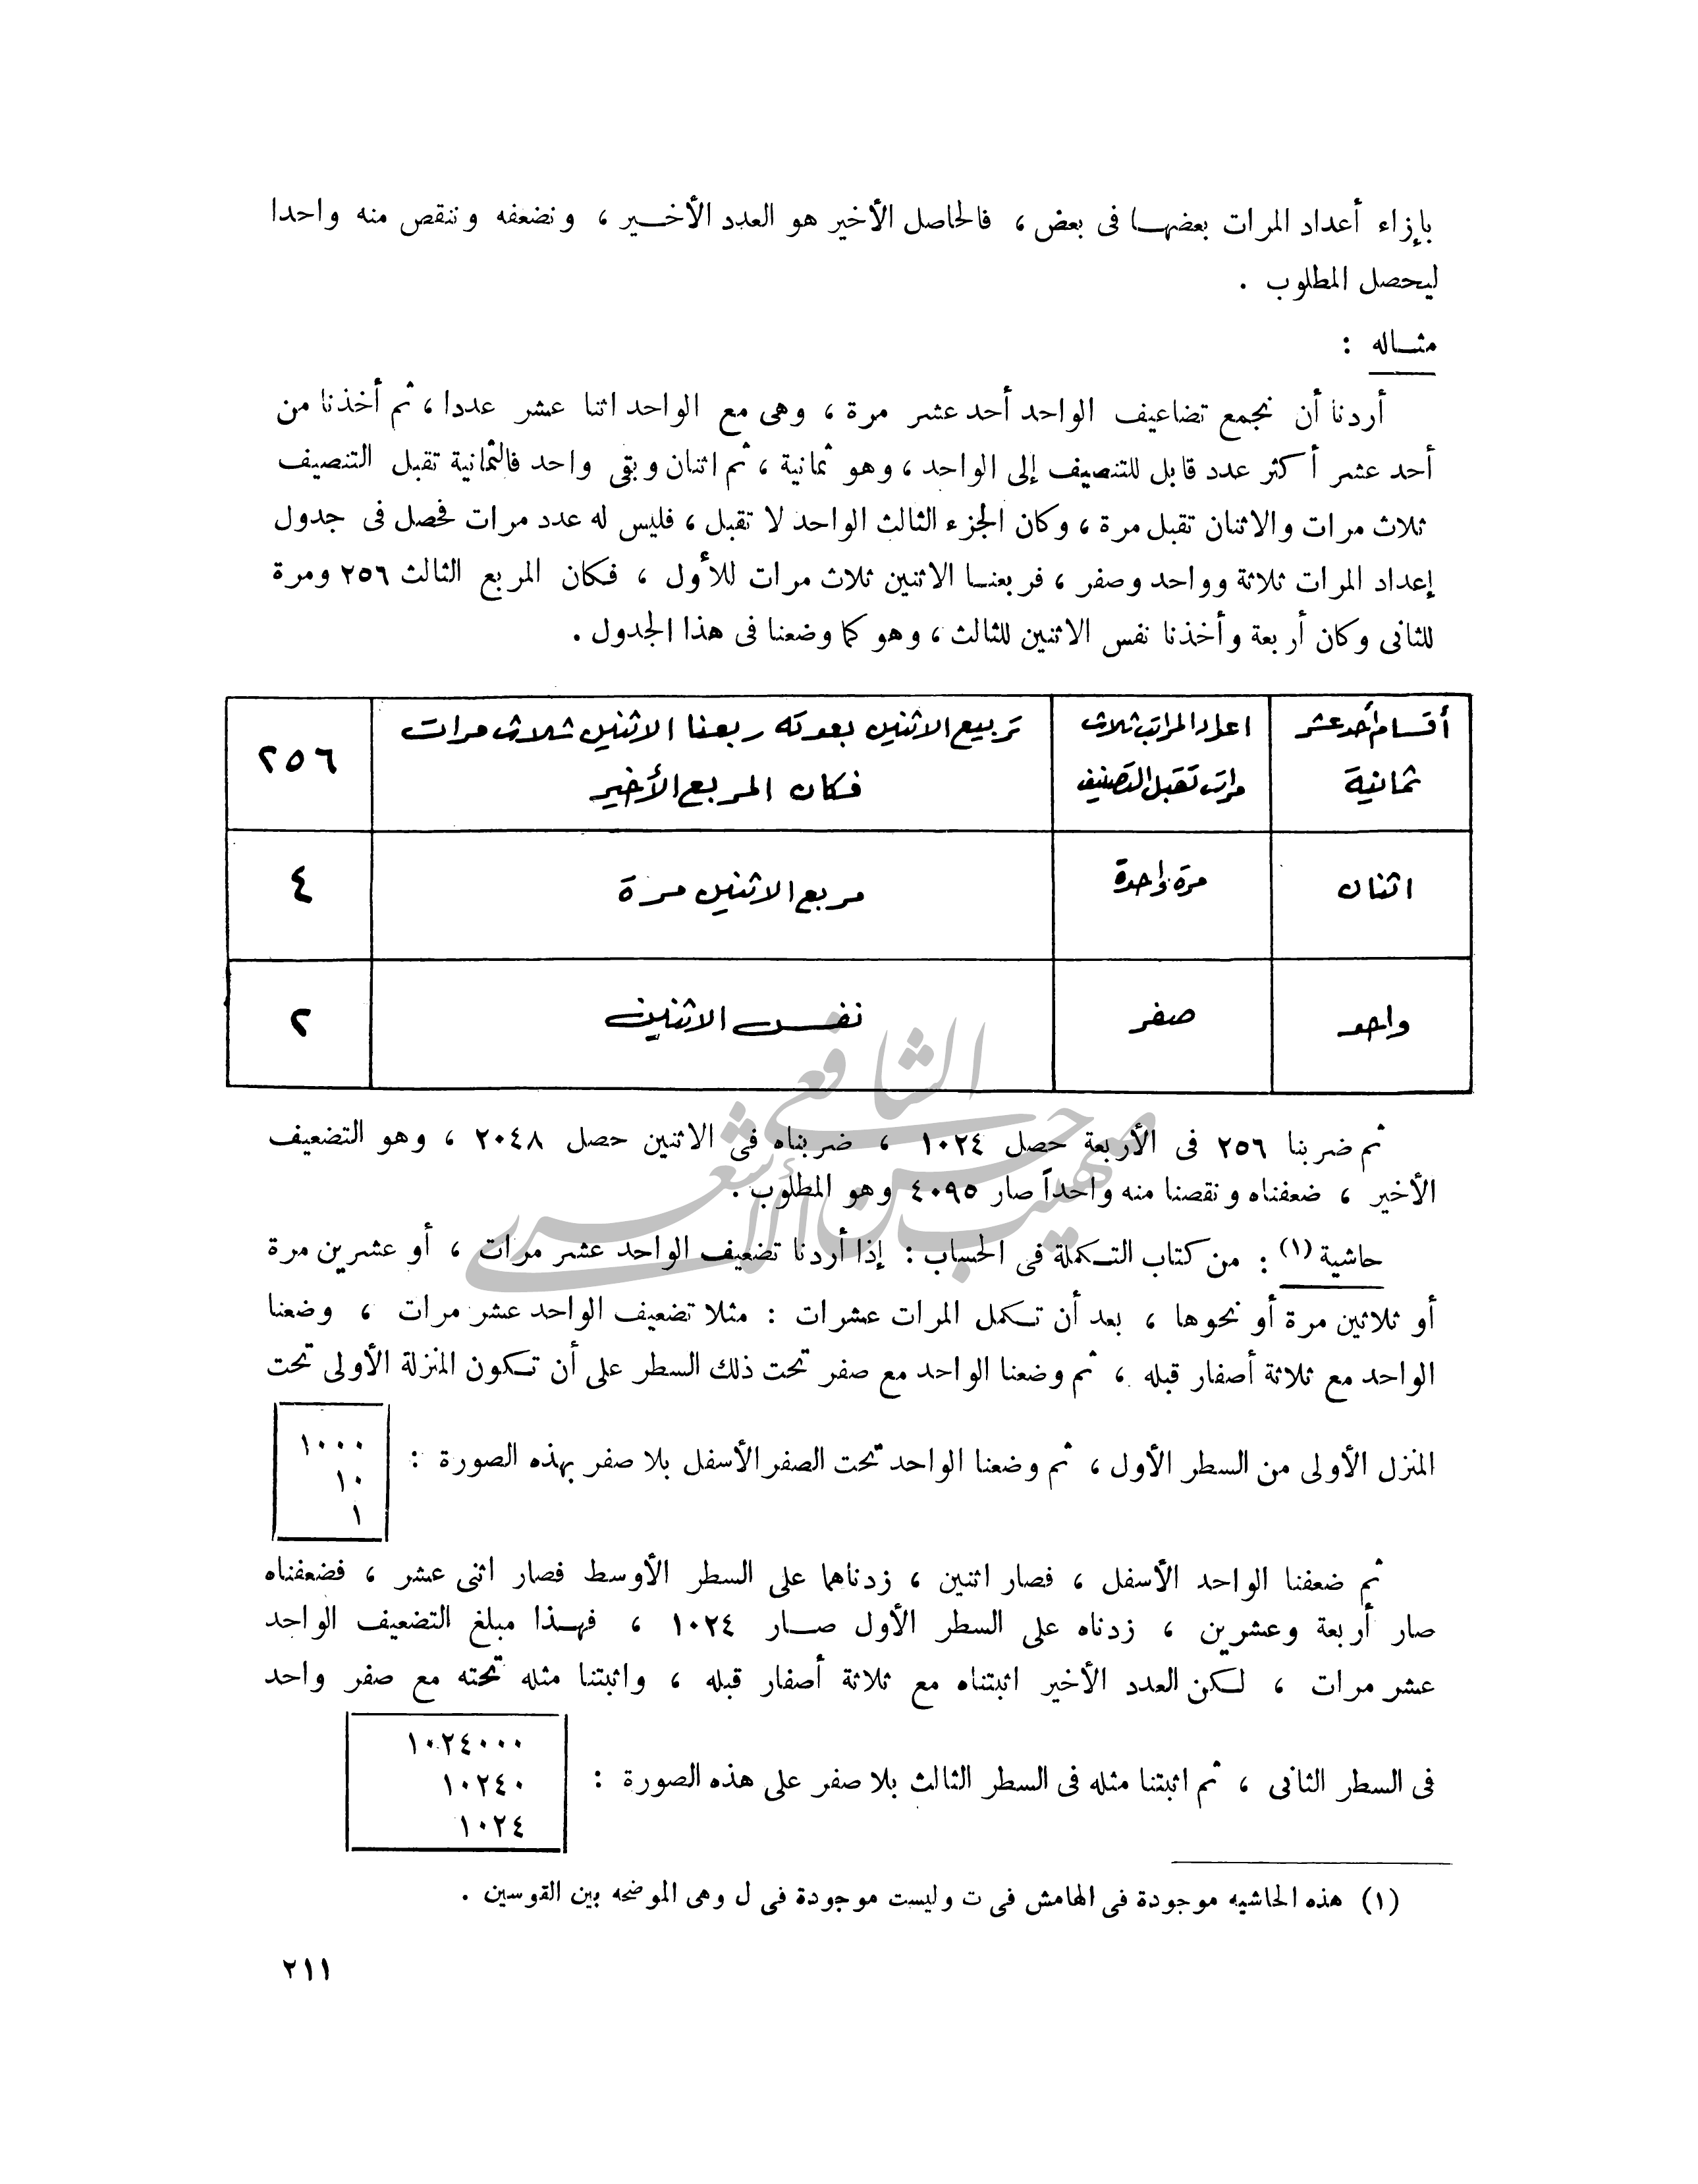 بإزاء أعداد المرات بعضهـا فى بعض ، فالحاصل الأخير هو العدد الأخـير ، ونضعفه وننقص منه واحدا
ليحصل المطلوب .
مثـاله :
أردنا أن نجمع تضاعيف الواحد أحد عشر مرة ، وهى مع الواحد اثنا عشر عددا ، ثم أخذنا من
أحد عشر أكثر عدد قابل للتنصيف إلى الواحد ، وهو ثمانية ، ثم اثنان وبقى واحد فالثمانية تقبل التنصيف
ثلاث مرات والاثنان تقبل مرة ، وكان الجزء الثالث الواحد لا تقبل ، فليس له عدد مرات فحصل فى جدول
إعداد المرات ثلاثة وواحد وصفر ، فربعنـا الاثنين ثلاث مرات للأول ، فكان المربع الثالث ٢٥٦ ومرة
للثانى وكان أربعة وأخذنا نفس الاثنين للثالث ، وهو كما وضعنا فى هذا الجدول .
أقسام أحد عشر ثمانية | اعداد المراتب ثلاث مرات تقبل التصنيف | تربيع الاثنين بعدته ربعنا الاثنين ثلاث مرات فكان المربع الأخير | ٢٥٦
اثنان | مرة واحدة | مربع الاثنين مرة | ٤
واحد | صفر | نفس الاثنين | ٢
ثم ضربنا ٢٥٦ فى الأربعة حصل ١٠٢٤ ، ضربناه فى الاثنين حصل ٢٠٤٨ ، وهو التضعيف
الأخير ، ضعفناه ونقصنا منه واحداً صار ٤٠٩٥ وهو المطلوب .
حاشية (١) : من كتاب التكملة فى الحساب : إذا أردنا تضعيف الواحد عشر مرات ، أو عشرين مرة
أو ثلاثين مرة أو نحوها ، بعد أن تكمل المرات عشرات : مثلا تضعيف الواحد عشر مرات ، وضعنا
الواحد مع ثلاثة أصفار قبله ، ثم وضعنا الواحد مع صفر تحت ذلك السطر على أن تكون المنزلة الأولى تحت
المنزل الأولى من السطر الأول ، ثم وضعنا الواحد تحت الصفر الأسفل بلا صفر بهذه الصورة :
١٠٠٠
١٠
١
ثم ضعفنا الواحد الأسفل ، فصار اثنين ، زدناهما على السطر الأوسط فصار اثنى عشر ، فضعفناه
صار أربعة وعشرين ، زدناه على السطر الأول صـار ١٠٢٤ ، فهـذا مبلغ التضعيف الواحد
عشر مرات ، لكن العدد الأخير اثبتناه مع ثلاثة أصفار قبله ، واثبتنا مثله تحته مع صفر واحد
فى السطر الثانى ، ثم اثبتنا مثله فى السطر الثالث بلا صفر على هذه الصورة :
١٠٢٤٠٠٠
١٠٢٤٠
١٠٢٤
(١) هذه الحاشيه موجودة فى الهامش فى ت وليست موجودة فى ل وهى الموضحه بين القوسين .
٢١١
مهيب حسن الشافعي الأشعري